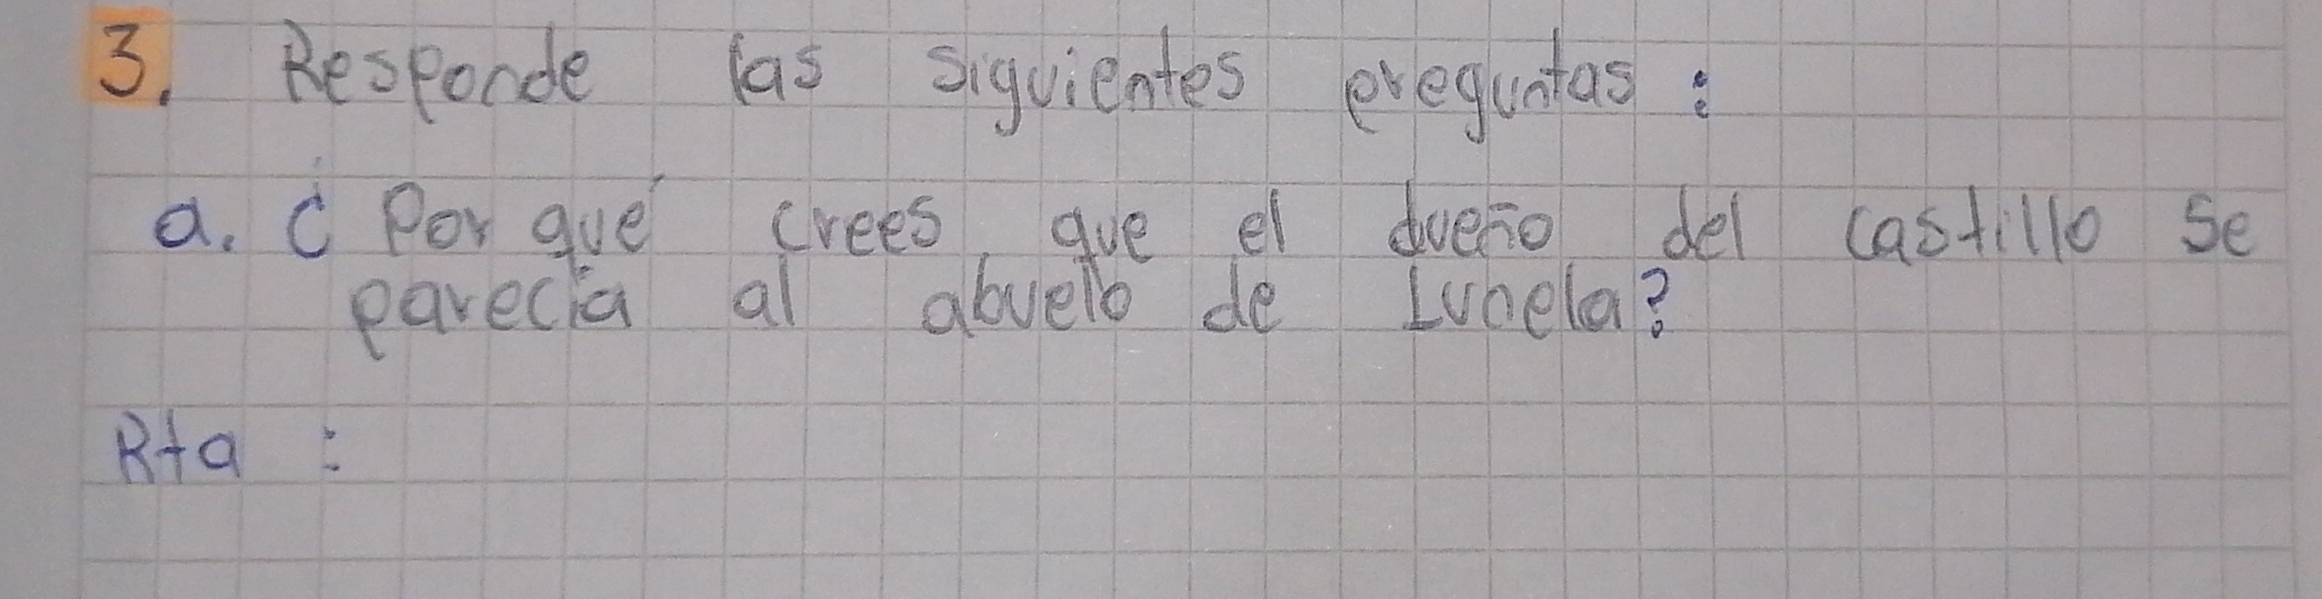 3. Responde las siguientes preguntas:
a. ¿Por qué crees que el dueño del castillo se
parecía al abuelo de Lunela?
Rta: